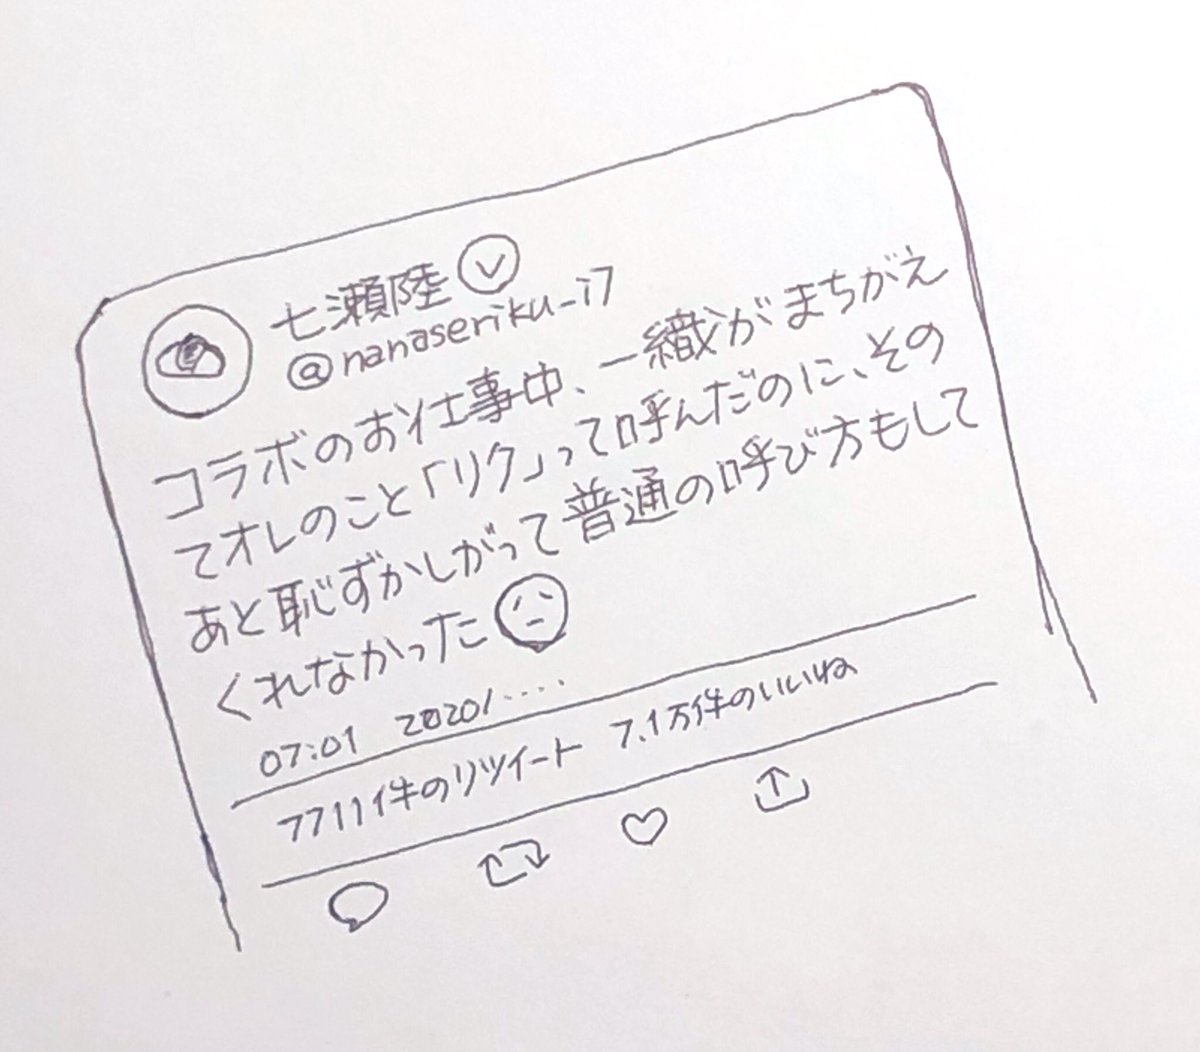 七瀬陸
@nanaseriku_i7
コラボのお仕事中、一織がまちがえ
てオレのこと「リク」って呼んだのに、その
あと恥ずかしがって普通の呼び方もして
くれなかった
07:01 2020/....
7711件のリツイート 7.1万件のいいね